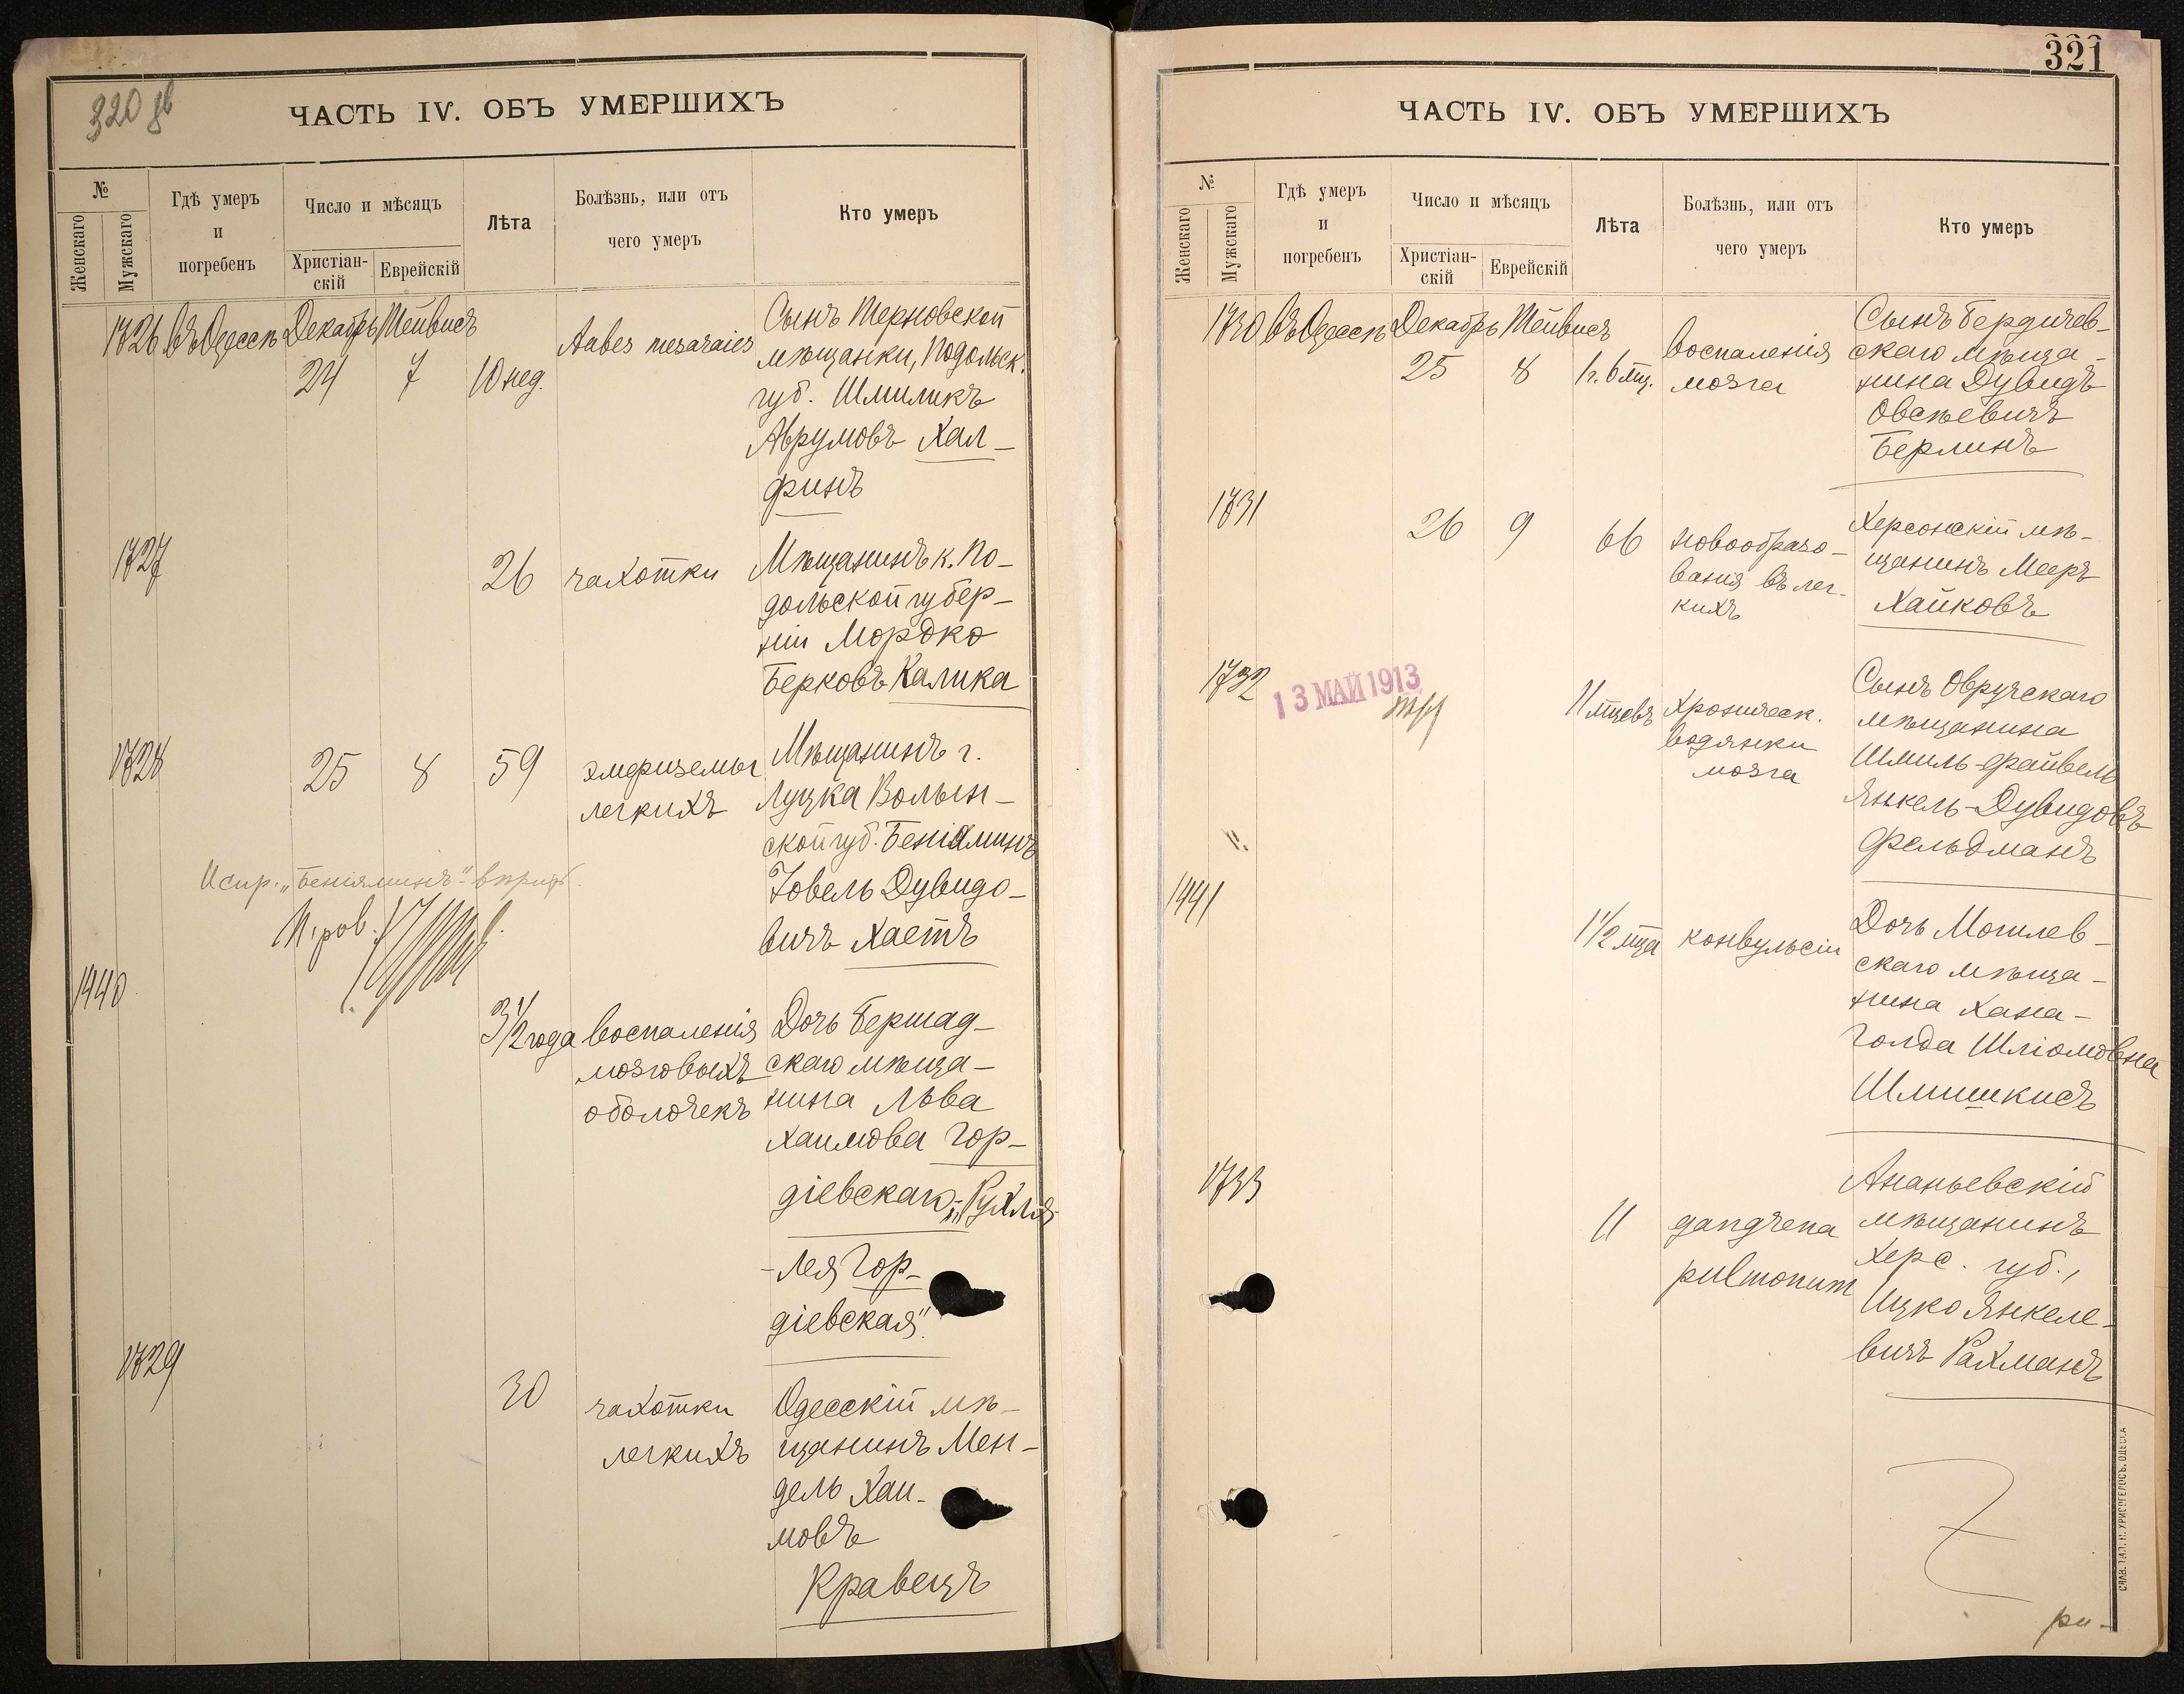 320 об
ЧАСТЬ IV. ОБЪ УМЕРШИХЪ
№
Женскаго
Мужскаго
Гдѣ умеръ
и
погребенъ
Число и мѣсяцъ
Христіан-
скій
Еврейскій
Лѣта
Болѣзнь, или отъ
чего умеръ
Кто умеръ
1726 Въ Одессѣ Декабрь Тейвисъ
24 7 10 нед.
Tabes mesaraica
Сынъ Терновской
мѣщанки, Подольск.
губ. Шмиликъ
Аврумовъ Хал-
финъ
1727
26 чахотки
Мѣщанинъ к. По-
дольской губер-
ніи Мордко
Берковъ Калика
1728
25 8 59
эмфиземы
легкихъ
Мѣщанинъ г.
Луцка Волын-
ской губ. Беніаминъ
Іовель Дувидо-
вичъ Хаетъ
Испр. „Беніяминъ"
1440
3 1/2 года
воспаленія
мозговыхъ
оболочекъ
Дочь Бершад-
скаго мѣща-
нина Льва
Хаимова Гор-
діевскаго - „Рухля-
-Лея Гор-
діевская".
1729
30
чахотки
легкихъ
Одесскій мѣ-
щанинъ Мен-
дель Хаи-
мовъ
Кравецъ
321
ЧАСТЬ IV. ОБЪ УМЕРШИХЪ
№
Женскаго
Мужскаго
Гдѣ умеръ
и
погребенъ
Число и мѣсяцъ
Христіан-
скій
Еврейскій
Лѣта
Болѣзнь, или отъ
чего умеръ
Кто умеръ
1730 Въ Одессѣ Декабрь Тейвисъ
25 8 1 г. 6 мц.
воспаленія
мозга
Сынъ Бердичев-
скаго мѣща-
нина Дувидъ
Овсѣевичъ
Берлинъ
1731
26 9 66
новообразо-
ванія въ лег-
кихъ
Херсонскій мѣ-
щанинъ Мееръ
Хайковъ
1732
13 МАЙ 1913
11 мцевъ
хроническ.
водянки
мозга
Сынъ Овручскаго
мѣщанина
Шмиль-Файвель
Янкель-Дувидовъ
Фельдманъ
1441
1 1/2 мца
конвульсіи
Дочь Могилев-
скаго мѣща-
нина Хана-
Голда Шліомовна
Шлишкисъ
1733
11
gangrena
pulmonum
Ананьевскій
мѣщанинъ
Херс. губ.,
Ицко Янкеле-
вичъ Рахманъ